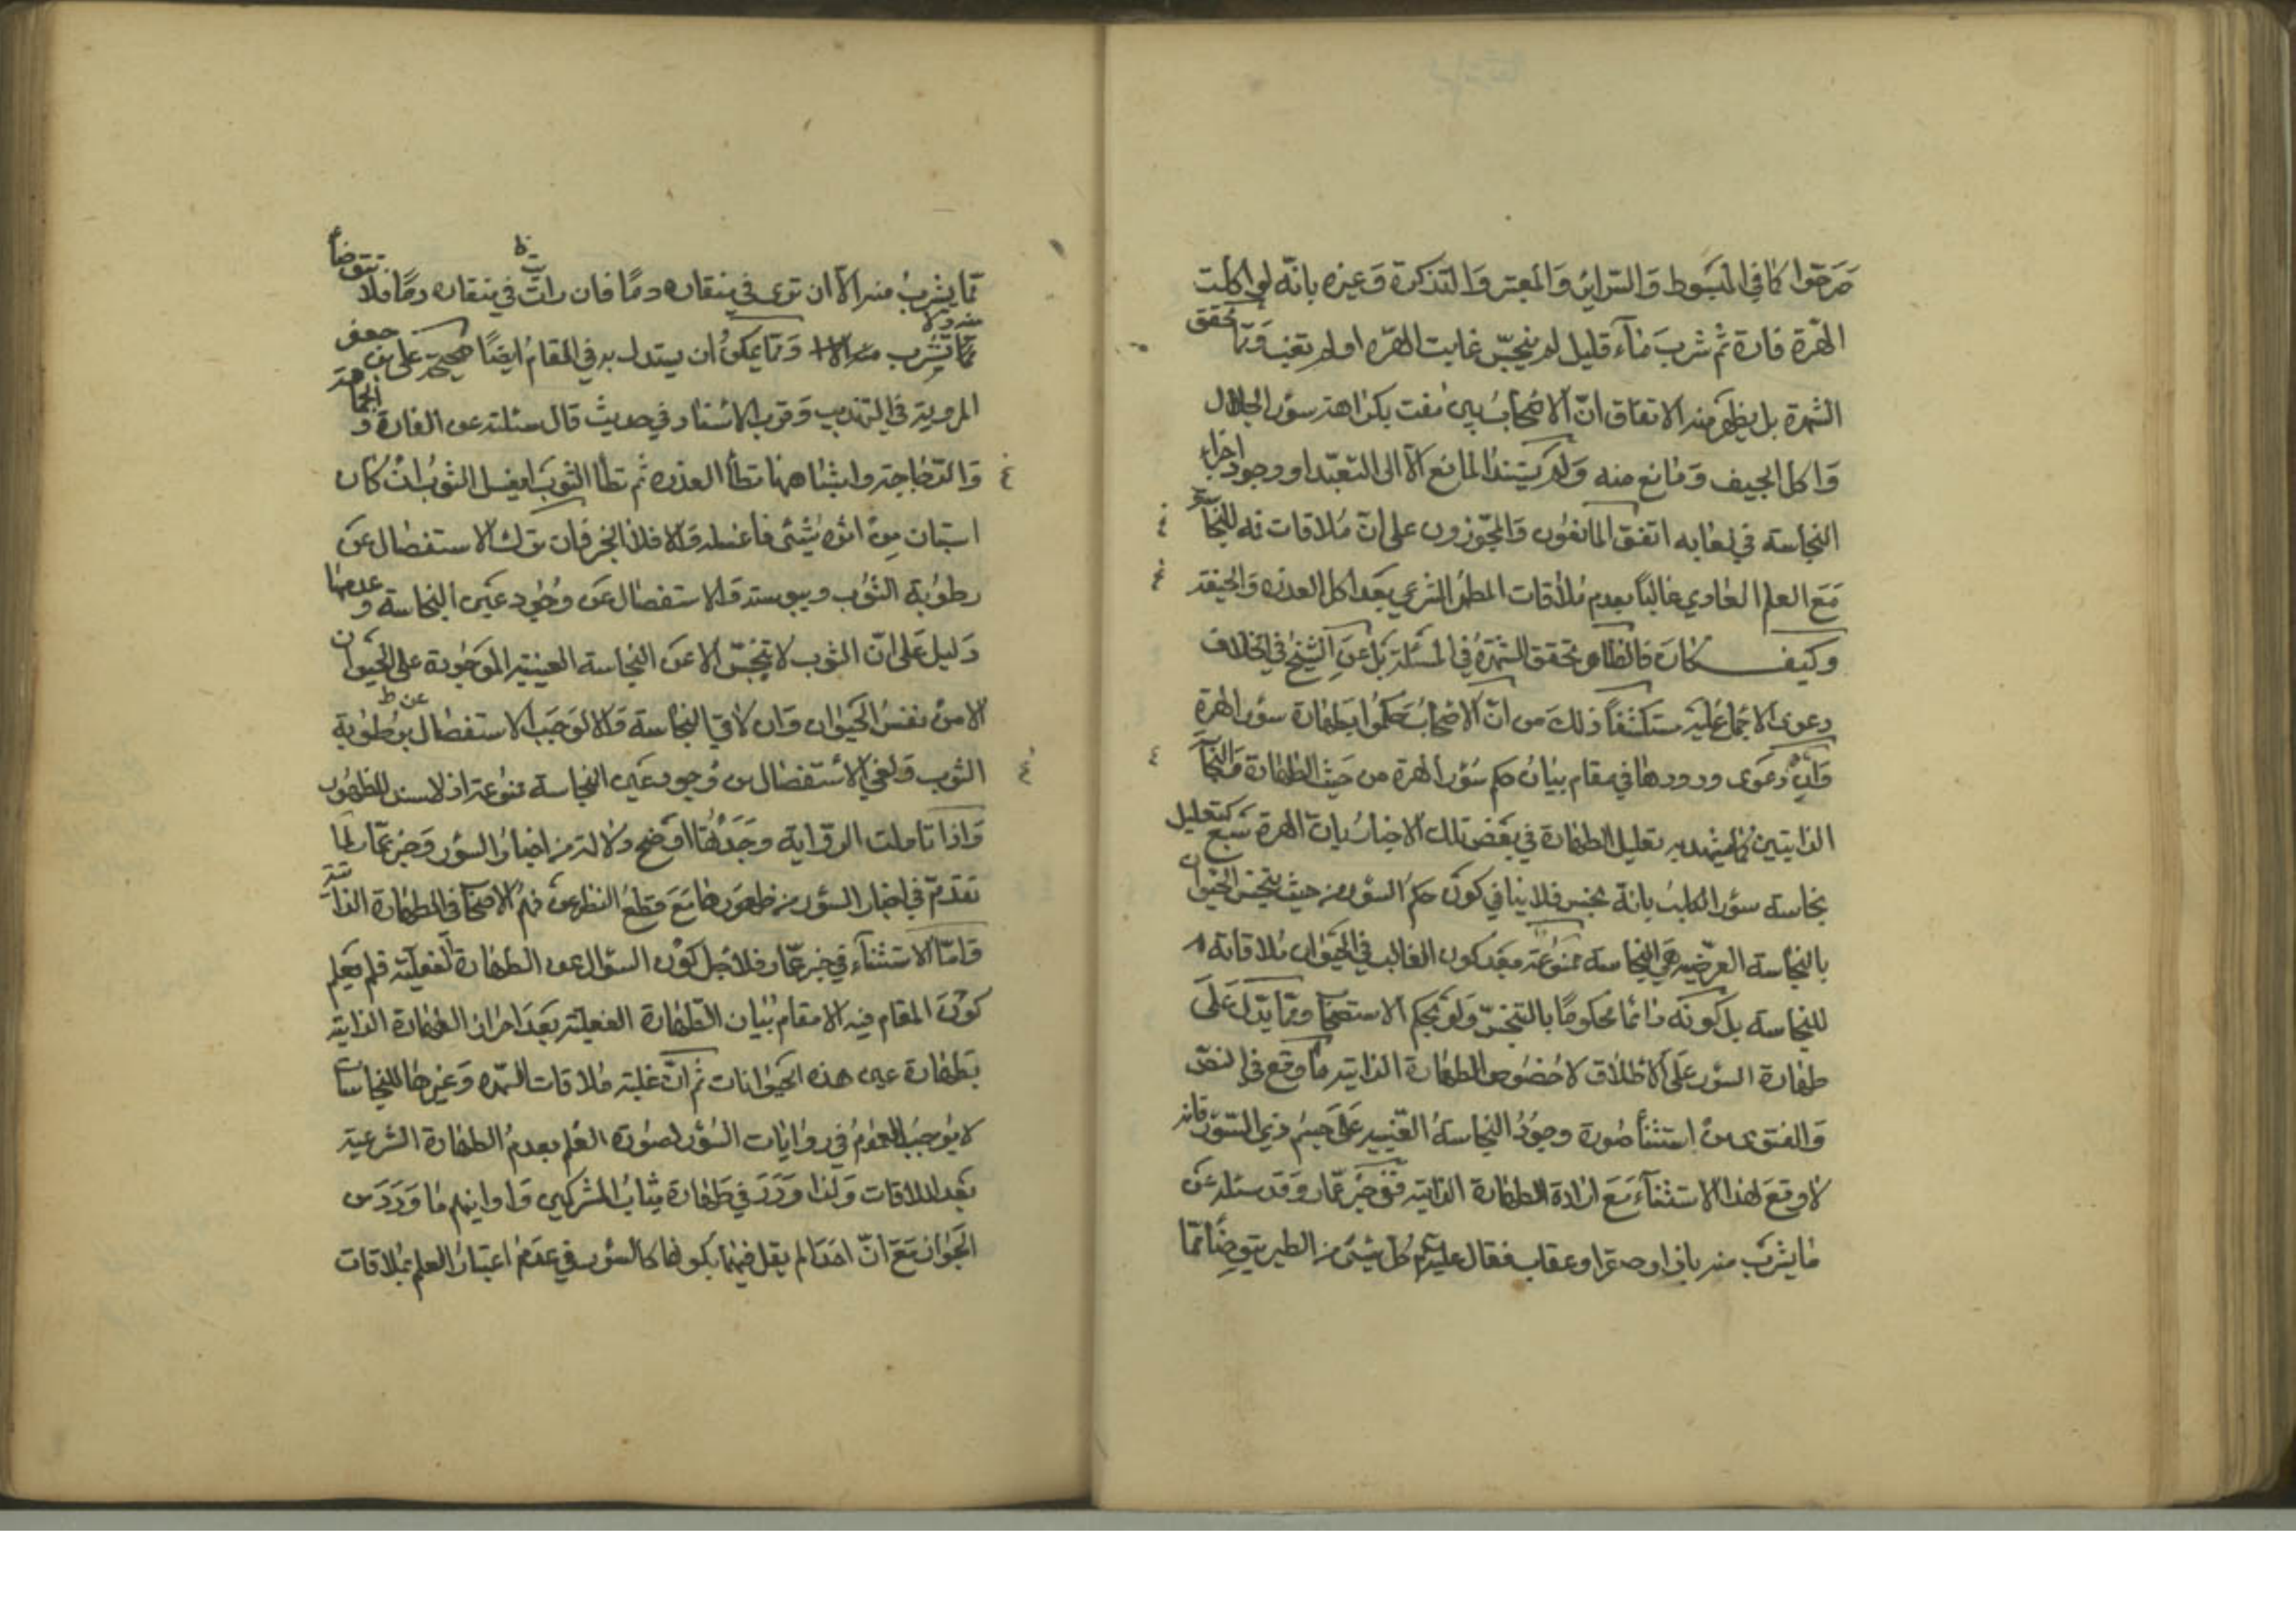 صرحوا كما في المبسوط والسرائر والمعتبر والتذكرة وغيره بانّه لو اكلت
الهّرة فارة ثم شرب ماء قليل لم ينجّس غابت الهرّه او لم تغب وممّا تحقق
الشهرة بل يظهر منه الاتفاق انّ الاصحاب بين مفت بكراهة سؤر الجلال
واكل الجيف ومانع منه ولم يستند المانع الّا الى التعبّد او وجود اجزاء
النجاسة في لعابه اتفق المانعون والمجّوزون على انّ ملاقات فه للنجاسة
مع العلم العادي غالباً بعدم ملاقات المطهر الشرعي بعد اكل العذره والجيفة
وكيف كان فالظاهر تحقق الشهرة في المسئلة بل عن الشيخ في الخلاف
دعوى الاجماع عليه مستكشفاً ذلك من انّ الاصحاب حكموا بطهارة سؤر الهرة
وانّ دعوى ورودها في مقام بيان حكم سؤر الهرة من حيث الطهارة والنجاسة
الذاتيتين كما يشهد به تعليل الطهارة في بعض تلك الاخبار بانّ الهرة سبع كتعليل
نجاسة سؤر الكلب بانّه نجس فلا ينافي كون حكم السؤر من حيث تنجس الحيوان
بالنجاسة العرضيه هي النجاسة ممنوعة بعد كون الغالب في الحيوان ملاقاته
للنجاسة بل كونه دائما محكومًا بالتنجّس ولو بحكم الاستصحاب وممّا يدل على
طهارة السؤر على الاطلاق لا خصوص الطهارة الذاتيه ما وقع في النصّ
والفتوى من استثنا صورة وجود النجاسة العينيه على جسم ذي السّؤر فانه
لا وقع لهذا الاستثناء مع ارادة الطهارة الذاتيه ففي خبر عمّار وقد سئل عن
ما يشرب منه باز او صقر او عقاب فقال عليه السلام كل شيئ من الطير يتوضّأ ممّا
ممّا يشرب منه الّا ان ترى في منقاره دمًا فان رات في منقاره دمًا فلا تتوضأ
ممّا تشرب منه ولا وممّا يمكن ان يستدل به في المقام ايضًا صحيحة علي بن جعفر
المروية في التهذيب وقرب الاسناد في حديث قال سئلته عن الفارة و
والدّجاجة واشباههما تطأ العذره ثم تطأ الثوب ايغسل الثوب ان كان
استبان من اثره شيئى فاغسله والا فلا الخبر فان ترك الاستفصال عن
رطوبة الثوب ويبوسته والاستفصال عن وجود عين النجاسة وعدمها
دليل على انّ الثوب لا تنجّس الا عن النجاسة العينيه الموجودة على الحيوان
الا من نفس الحيوان وان لاقي النجاسة والا لوجب الاستفصال عن رطوبة
الثوب ولغي الاستفصال من وجود عين النجاسة
واذا تاملت الرواية وجدتها اوضح دلالة من اخبار السؤر وخبر عمّار لما
تقدم في اخبار السؤر من ظهورها مع قطع النظر عن فهم الاصحاب في الطهارة الذاتية
وامّا الاستثناء في خبر عمّار فلاجل كون السؤال عن الطهارة الفعلية فلم يعلم
كون المقام فيه الا مقام بيان الطهارة الفعلية بعد احراز الطهارة الذاتية
بطهارة عين هذه الحيوانات ثم انّ غلبة ملاقات الهرّه وغيرها للنجاسات
لا يوجب العموم في روايات السؤر لصورة العلم بعدم الطهارة الشرعية
بعد الملاقات ولذا ورد في طهارة ثياب المشركين واوانيهم ما ورد من
الجواز مع انّ احدا لم يقل فيهما بكونها كالسؤر في عدم اعتبار العلم بملاقات